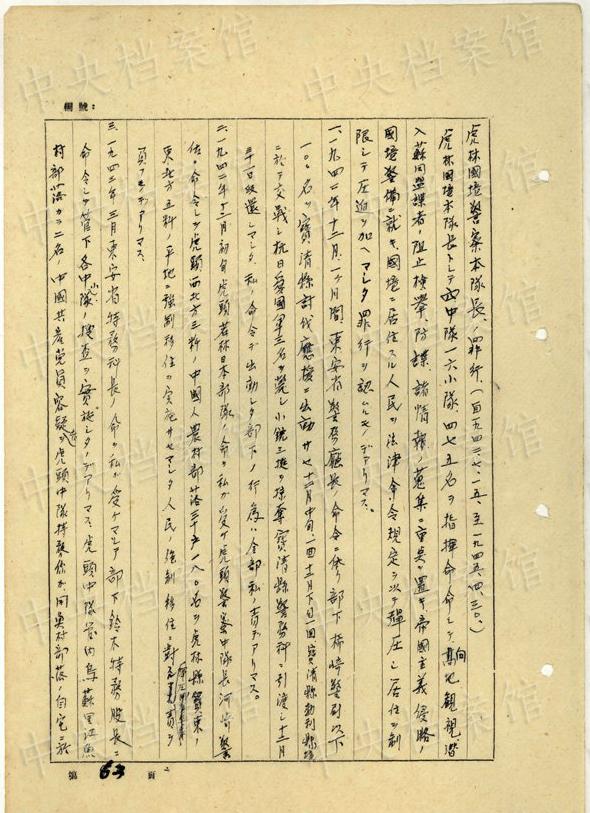 編號：
虎林國境警察本隊長ノ罪行、（自一九四二、七、一五、至一九四五、四、三〇、）
虎林國境本隊長トシテ四中隊一六小隊、四七五名ヲ指揮命令シテ、高地観視、潜
入蘇同盟諜者ノ阻止検挙、防諜、諸情報ノ蒐集ニ重点ヲ置キ帝國主義侵略ノ
國境警備ニ就キ國境ニ居住スル人民ヲ法律命令、規定ヲ以テ弾圧シ居住ヲ制
限シテ圧迫ヲ加ヘマシタ罪行ヲ認ムルモノデアリマス。
一、一九四二年十二月、一ヶ月間、東安省警務廳長ノ命令ニ依リ部下柿崎警尉以下
一〇〇名ヲ寶清縣討伐應援ニ出動サセ十二月中旬一回十二月下旬一回寶清縣勃利縣境
ニ於テ交戦シ抗日愛國軍三名ヲ斃シ小銃三挺ヲ掠奪寶清縣警務科ニ引渡シ十二月
三十一日皈還シマシタ、私ノ命令デ出動シタ部下ノ行為ハ全部私ノ責デアリマス。
二、一九四二年十二月初旬虎頭若林日本部隊ノ命ヲ私ガ受ケ虎頭警察中隊長河崎警
佐ニ命令シテ虎頭西北方三粁ノ中國人農村部落三十戸一八〇名ヲ虎林縣
東北方五粁ノ平地ニ強制移住ヲ実施サセマシタ人民ノ強制移住ニ対スル責ヲ
負フモノデアリマス
三、一九四三年三月東安省特務科長ノ命ヲ私ガ受ケマシテ部下鈴木特務股長ニ
命令シテ管下各中隊、小隊ノ捜査ヲ實施シタノデアリマス、虎頭中隊管内烏蘇里江
村部落カラ二名ノ中國共産党員容疑者ヲ虎頭中隊特務係ガ同
第 63 頁
中央档案馆
中央档案馆
中央档案馆
中央档案馆